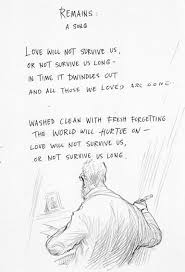 REMAINS:
A SONG
LOVE WILL NOT SURVIVE US,
OR NOT SURVIVE US LONG-
IN TIME IT DWINDLES OUT
AND ALL THOSE WE LOVED ARE GONE
WASHED CLEAN WITH FRESH FORGETTING
THE WORLD WILL HURTLE ON-
LOVE WILL NOT SURVIVE US,
OR NOT SURVIVE US LONG.